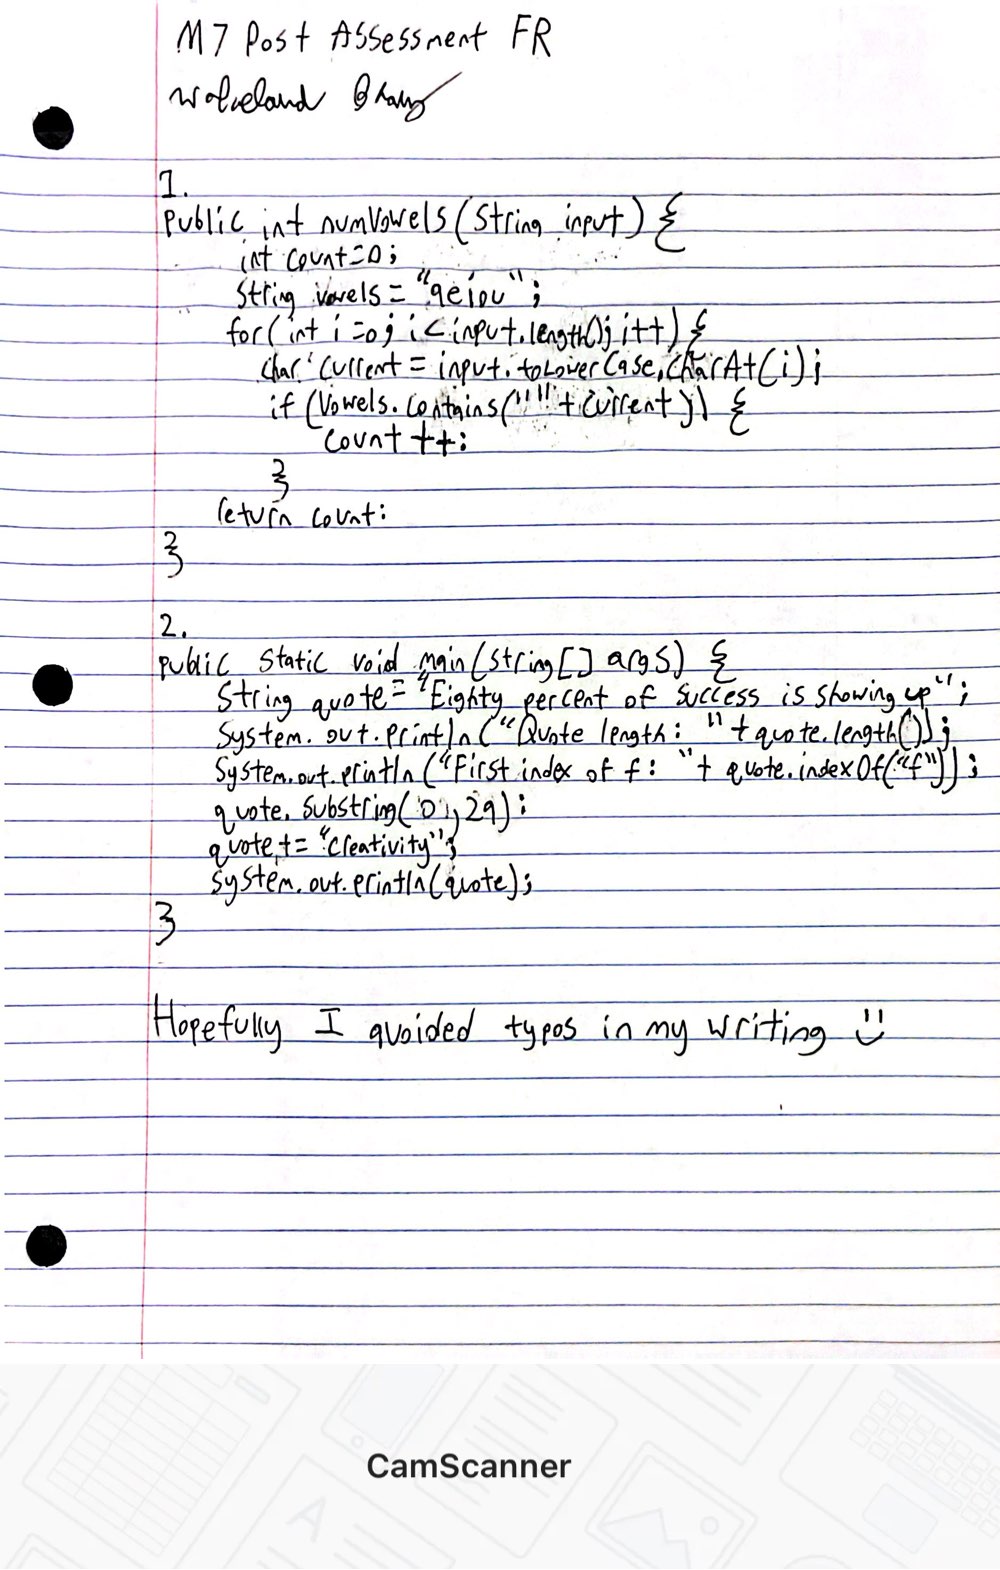 M7 Post Assessment FR
1.
public int numVowels(String input) {
int count=0;
String vowels = "aeiou";
for(int i=0; i<input.length(); i++) {
char current = input.toLowerCase.charAt(i);
if (vowels.contains("" + current)) {
count ++;
}
return count;
}
2.
public static void main(String[] args) {
String quote = "Eighty percent of success is showing up";
System.out.println("Quote length: " + quote.length());
System.out.println("First index of f: " + quote.indexOf("f"));
quote.substring(0, 29);
quote += "creativity";
System.out.println(quote);
}
Hopefully I avoided typos in my writing
CamScanner